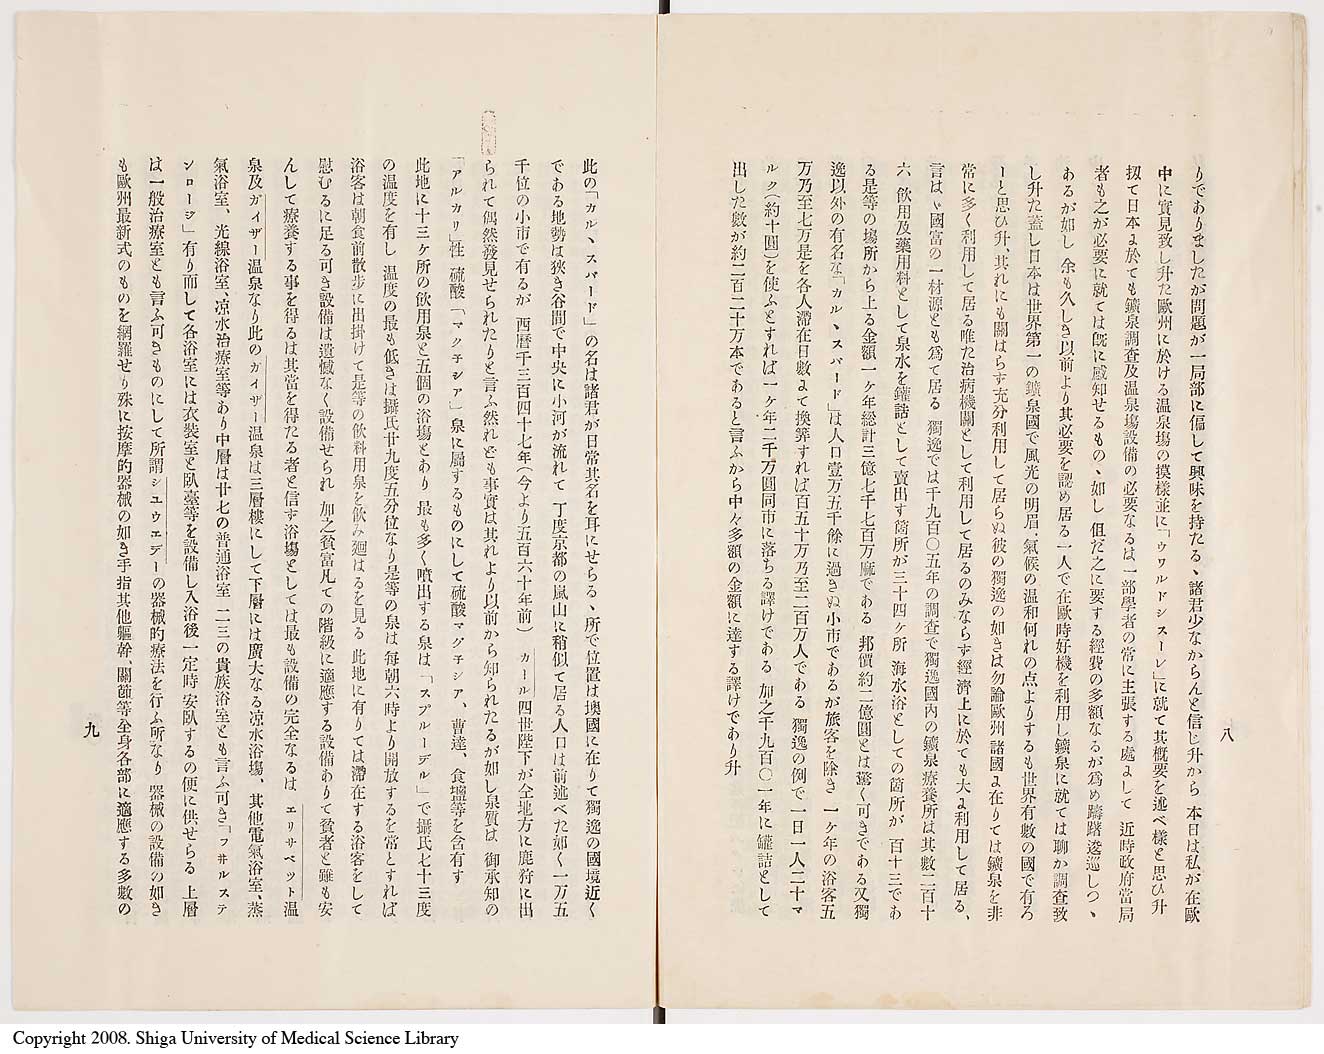 りでありましたが問題が一局部に偏して興味を持たる、諸君少なからんと信じ升から 本日は私が在歐
中に實見致し升た歐州に於ける温泉塲の摸樣並に「ワワルドシスーレ」に就て其概要を述べ樣と思ひ升
扨て日本ょ於ても鑛泉調査及温泉塲設備の必要なるは一部學者の常に主張する處ょして 近時政府當局
者も之が必要に就ては既に感知せるもの、如し 但だ之に要する經費の多額なるが爲め躊躇逡巡しつ、
あるが如し 余も久しき以前より其必要を認め居る一人で在歐時好機を利用し鑛泉に就ては聊か調査致
し升た蓋し日本は世界第一の鑛泉國で風光の明眉、氣候の温和何れの点よりするも世界有數の國で有ろ
ーと思ひ升、其れにも關はらす充分利用して居らぬ彼の獨逸の如きは勿論歐州諸國ょ在りては鑛泉を非
常に多く利用して居る唯た治病機關として利用して居るのみならす經濟上に於ても大ょ利用して居る、
言はゞ國富の一材源とも爲て居る 獨逸では千九百〇五年の調査で獨逸國内の鑛泉療養所は其數二百十
六 飮用及藥用料として泉水を鑵詰として賣出す箇所が三十四ヶ所 海水浴としての箇所が 百十三であ
る是等の塲所から上る金額一ヶ年総計三億七千七百万麻である 邦價約二億圓とは驚く可きである又獨
逸以外の有名な「カルヽスバード」は人口壹万五千餘に過きぬ小市であるが旅客を除き 一ヶ年の浴客五
万乃至七万是を各人滯在日數ょて換筭すれば百五十万乃至二百万人である 獨逸の例で一日一人二十マ
ルク(約十圓)を使ふとすれば一ヶ年二千万圓同市に落ちる譯けである 加之千九百〇一年に罐詰として
出した數が約二百二十万本であると言ふから中々多額の金額に達する譯けであり升
八
此の「カルヽスバード」の名は諸君が日常其名を耳にせらる、所で位置は墺國に在りて獨逸の國境近く
である地勢は狹き谷間で中央に小河が流れて 丁度京都の嵐山に稍似て居る人口は前述べた如く一万五
千位の小市で有るが 西暦千三百四十七年(今より五百六十年前) カール四世陛下が仝地方に鹿狩に出
られて偶然發見せられたりと言ふ然れども事實は其れより以前から知られたるが如し泉質は 御承知の
「アルカリ」性 硫酸「マクチシア」泉に屬するものにして硫酸マグチシア、曹達、食鹽等を含有す
此地に十三ヶ所の飮用泉と五個の浴塲とあり 最も多く噴出する泉は「スプルーデル」で攝氏七十三度
の温度を有し 温度の最も低きは攝氏廿九度五分位なり是等の泉は毎朝六時より開放するを常とすれば
浴客は朝食前散歩に出掛けて是等の飮料用泉を飮み廻はるを見る 此地に有りては滯在する浴客をして
慰むるに足る可き設備は遺憾なく設備せられ 加之貧富凡ての階級に適應する設備ありて貧者と雖も安
んして療養する事を得るは其當を得たる者と信す浴塲としては最も設備の完全なるは エリサベット温
泉及ガイザー温泉なり此のガイザー温泉は三層樓にして下層には廣大なる凉水浴塲、其他電氣浴室、蒸
氣浴室、光線浴室、凉水治療室等あり中層は廿七の普通浴室 二三の貴族浴室とも言ふ可き「フヰルステ
ンロージ」有り而して各浴室には衣裝室と臥臺等を設備し入浴後一定時 安臥するの便に供せらる 上層
は一般治療室とも言ふ可きものにして所謂シュウエデーの器械的療法を行ふ所なり 器械の設備の如き
も歐州最新式のものを網羅せり殊に按摩的器械の如き手指其他軀幹、關節等全身各部に適應する多數の
九
Copyright 2008. Shiga University of Medical Science Library